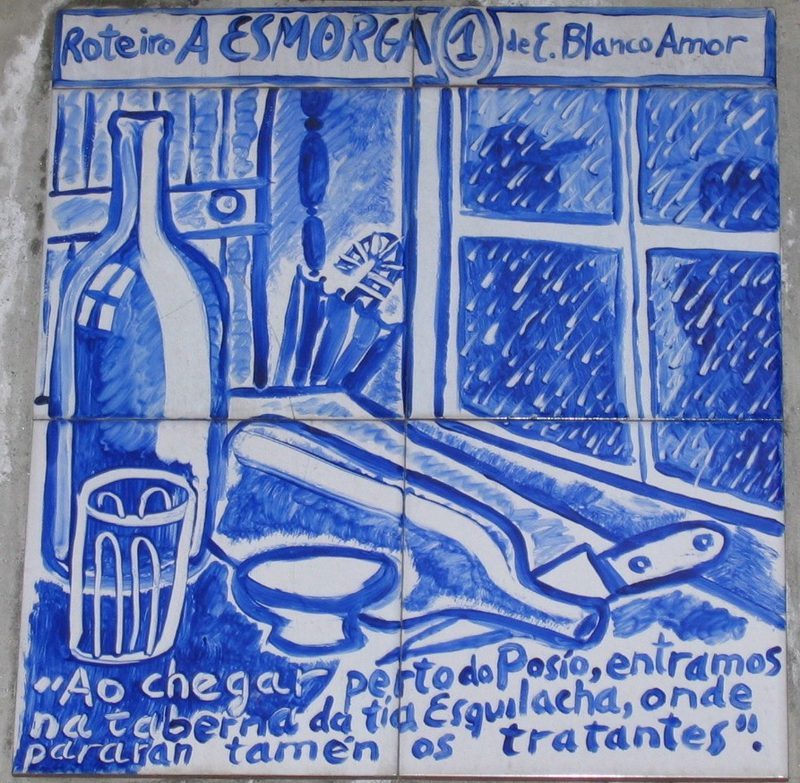 Roteiro A ESMORGA 1 de E. Blanco Amor
“Ao chegar perto do Posío, entramos
na taberna da tía Esguilacha, onde
pararan tamén os tratantes”.